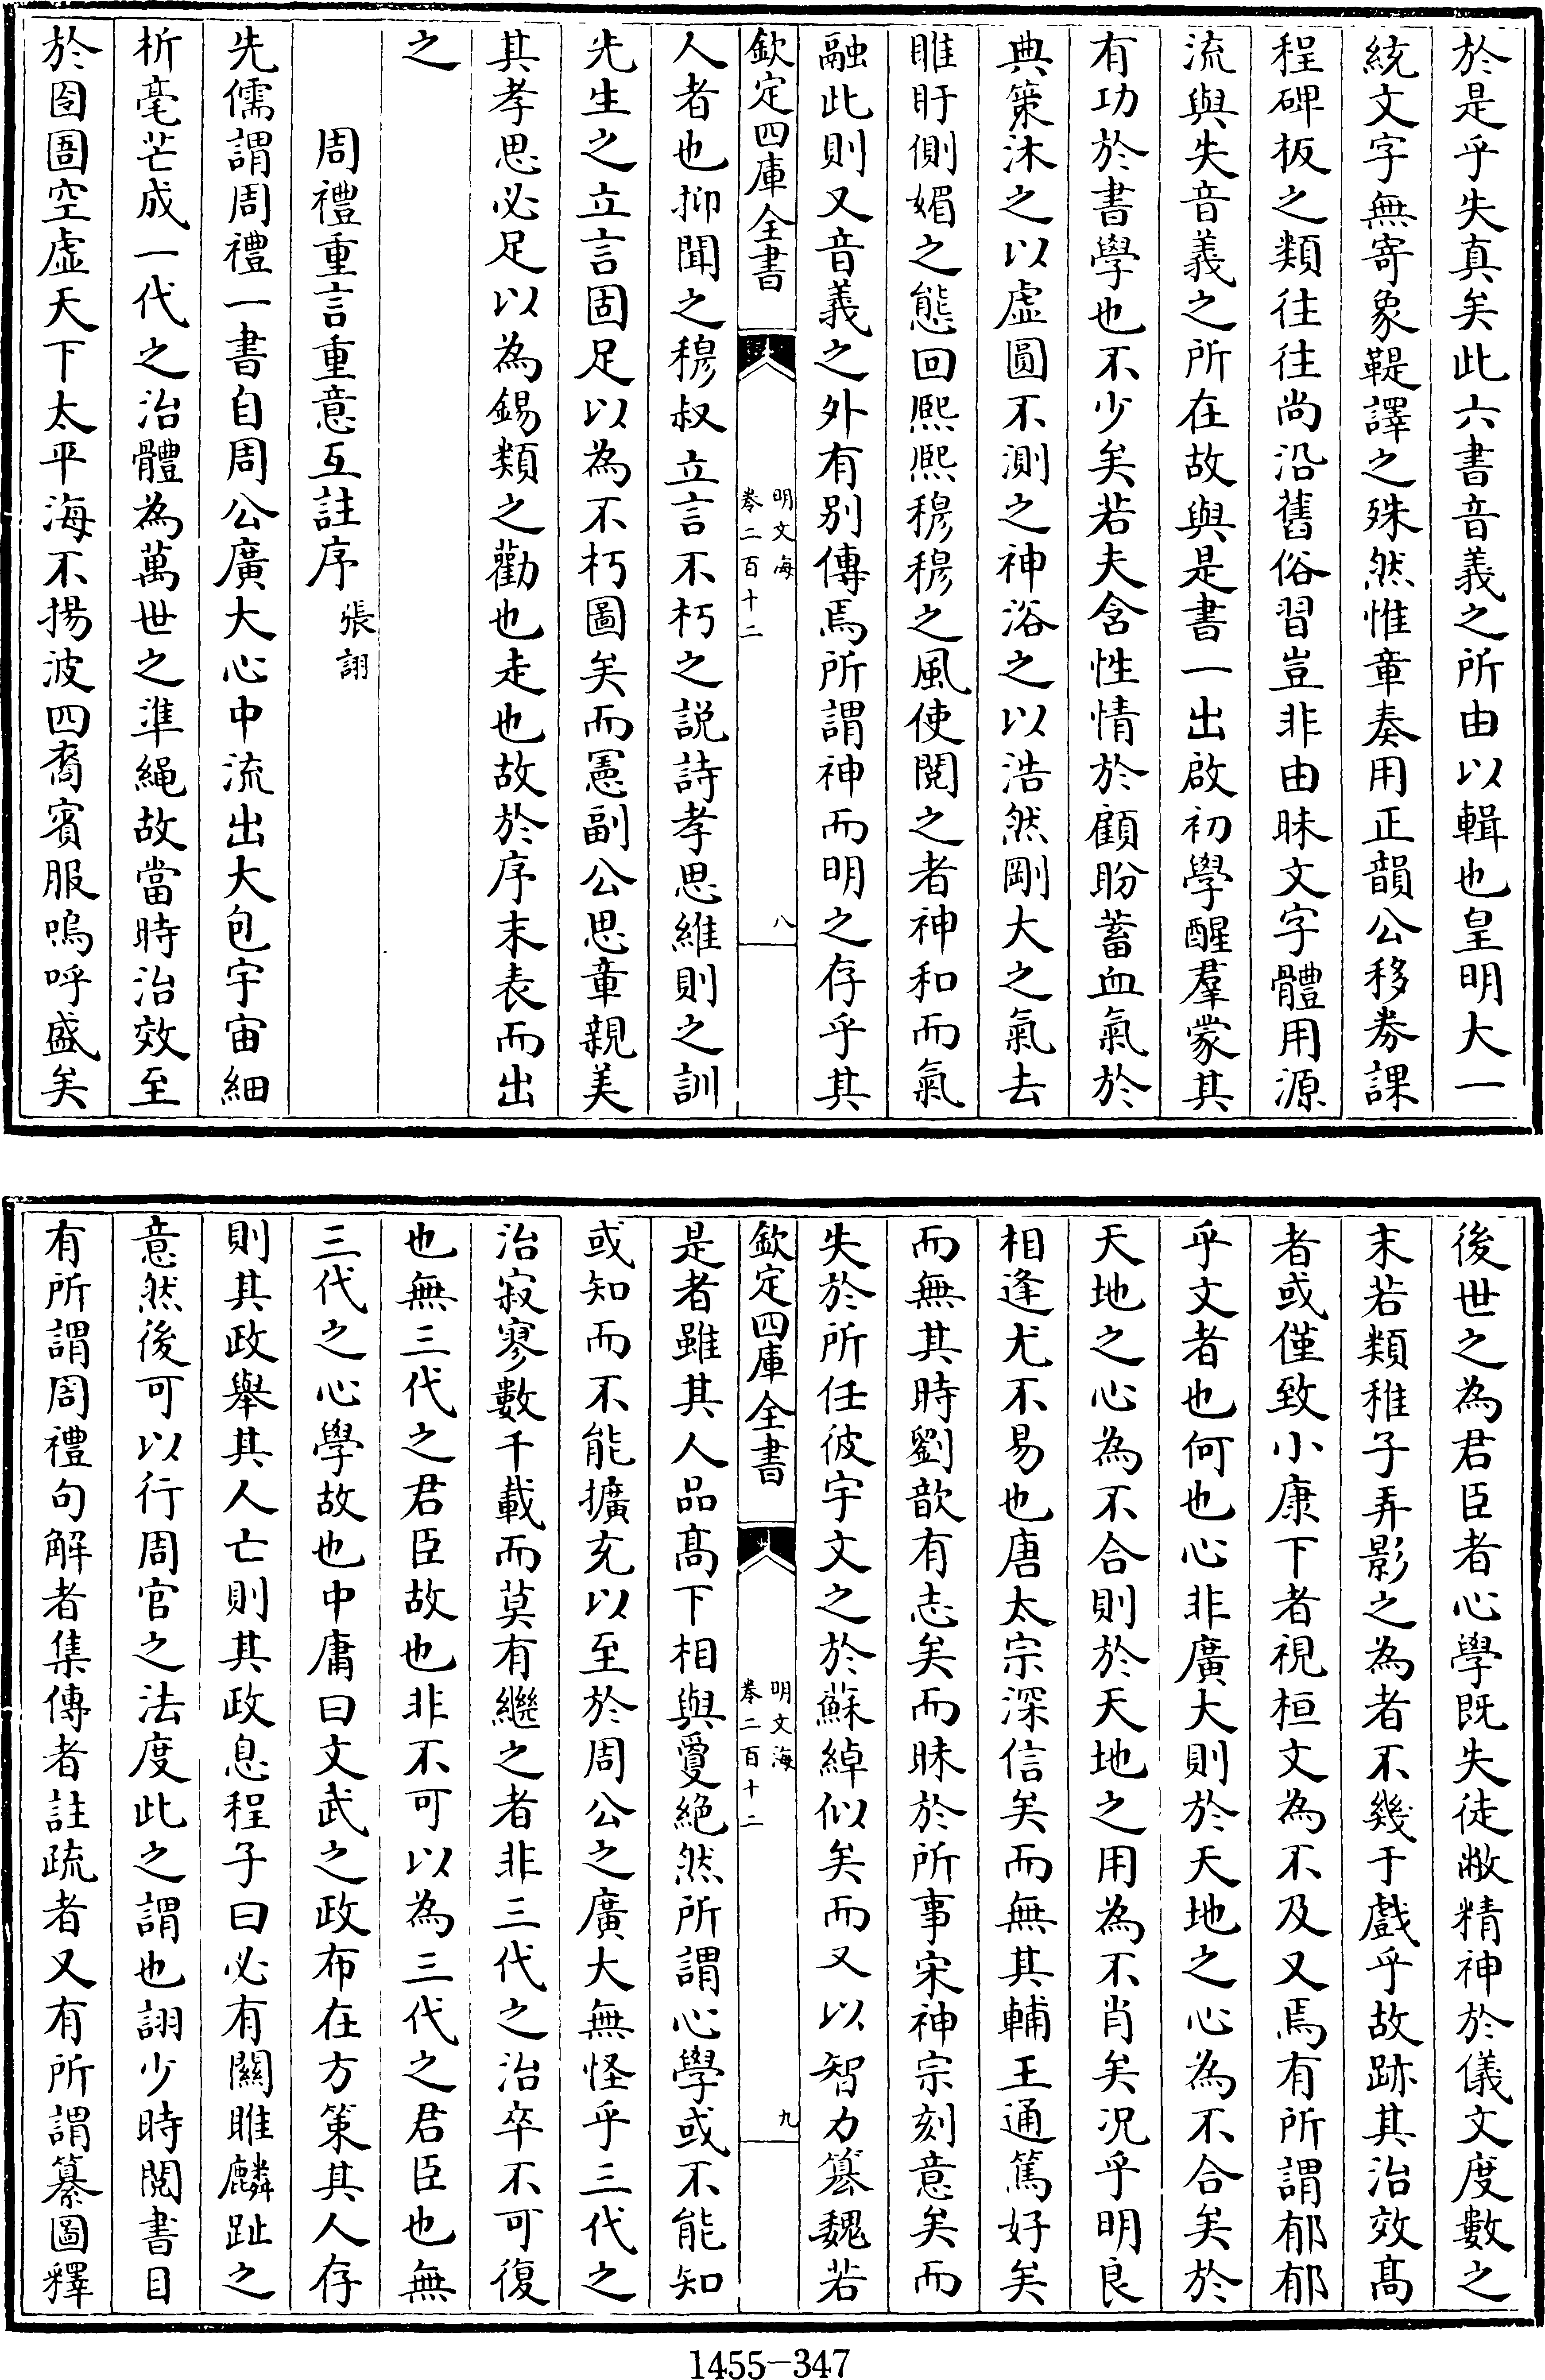 於是乎失真矣此六書音義之所由以輯也皇明大一
統文字無寄象鞮譯之殊然惟章奏用正韻公移劵課
程碑板之類往往尚沿舊俗習豈非由昧文字體用源
流與失音義之所在故與是書一出啟初學醒羣蒙其
有功於書學也不少矣若夫含性情於顧盼蓄血氣於
典策沐之以虛圓不測之神浴之以浩然剛大之氣去
睢盱側媚之態回熙熙穆穆之風使閱之者神和而氣
融此則又音義之外有別傳焉所謂神而明之存乎其
欽定四庫全書
明文海
卷二百十二
八
人者也抑聞之穆叔立言不朽之説詩孝思維則之訓
先生之立言固足以為不朽圖矣而憲副公思章親美
其孝思必足以為錫類之勸也走也故於序末表而出
之
周禮重言重意互註序 張詡
先儒謂周禮一書自周公廣大心中流出大包宇宙細
析毫芒成一代之治體為萬世之準繩故當時治效至
於囹圄空虛天下太平海不揚波四裔賓服嗚呼盛矣
後世之為君臣者心學既失徒敝精神於儀文度數之
末若類稚子弄影之為者不幾于戲乎故跡其治效高
者或僅致小康下者視桓文為不及又焉有所謂郁郁
乎文者也何也心非廣大則於天地之心為不合矣於
天地之心為不合則於天地之用為不肖矣况乎明良
相逢尤不易也唐太宗深信矣而無其輔王通篤好矣
而無其時劉歆有志矣而昧於所事宋神宗刻意矣而
失於所任彼宇文之於蘇綽似矣而又以智力簒魏若
欽定四庫全書
明文海
卷二百十二
九
是者雖其人品高下相與夐絕然所謂心學或不能知
或知而不能擴充以至於周公之廣大無怪乎三代之
治寂寥數千載而莫有繼之者非三代之治卒不可復
也無三代之君臣故也非不可以為三代之君臣也無
三代之心學故也中庸曰文武之政布在方策其人存
則其政舉其人亡則其政息程子曰必有關睢麟趾之
意然後可以行周官之法度此之謂也詡少時閱書目
有所謂周禮句解者集傳者註疏者又有所謂纂圖釋
1455-347